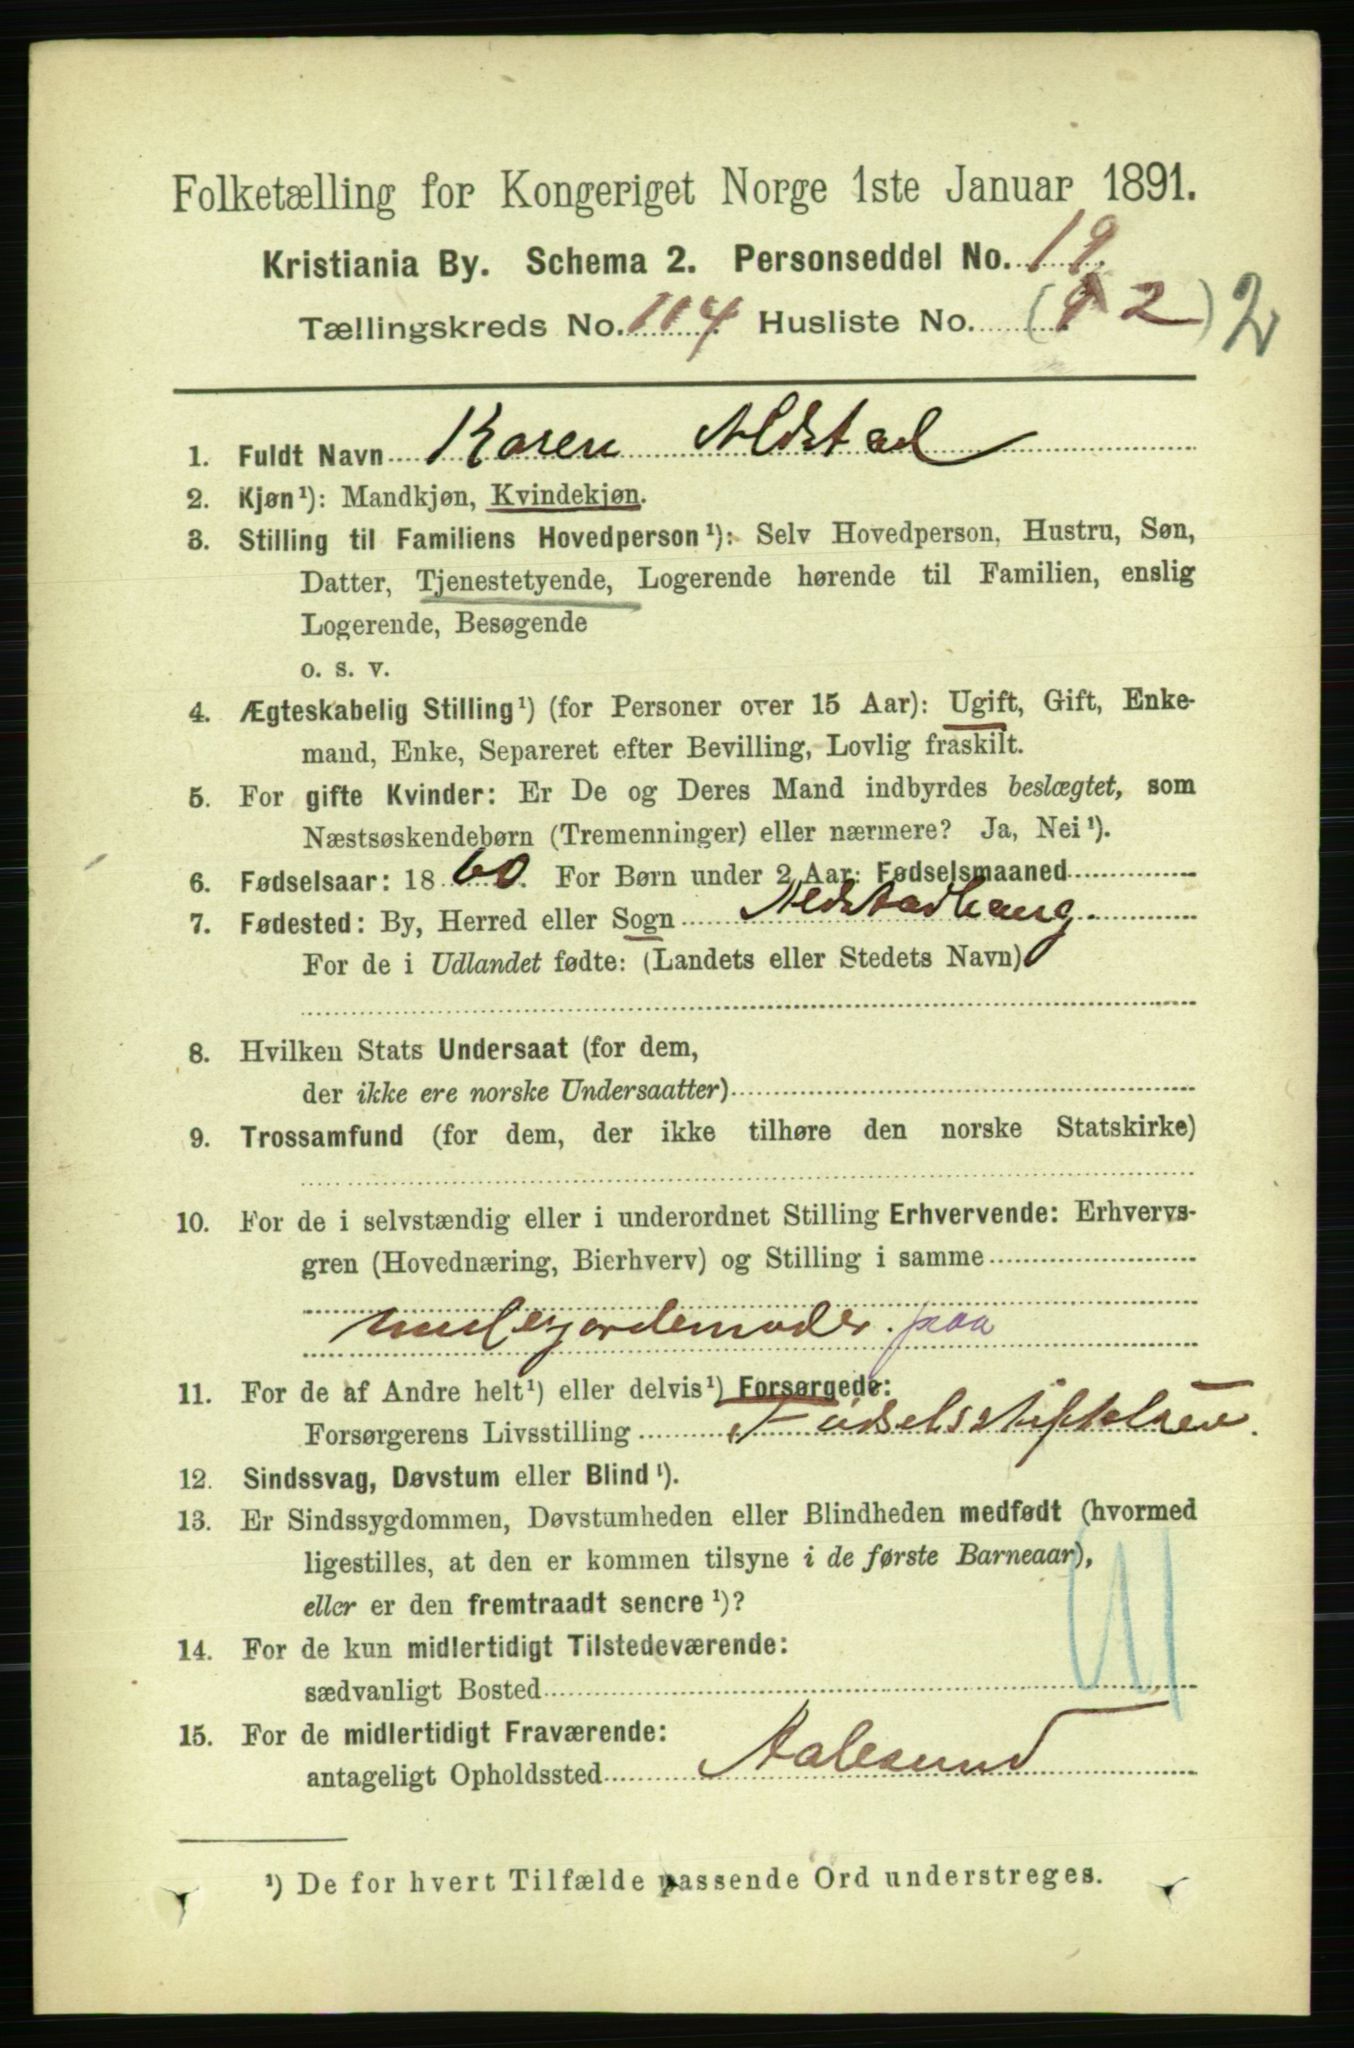 Folketælling for Kongeriget Norge 1ste Januar 1891.
Kristiania By. Schema 2. Personseddel No. 19.
Tællingskreds No. 114. Husliste No. (12) 2
1. Fuldt Navn Karen Alstad
2. Kjøn¹): Mandkjøn, Kvindekjøn.
3. Stilling til Familiens Hovedperson¹): Selv Hovedperson, Hustru, Søn,
Datter, Tjenestetyende, Logerende hørende til Familien, enslig
Logerende, Besøgende
o. s. v.
4. Ægteskabelig Stilling¹) (for Personer over 15 Aar): Ugift, Gift, Enke-
mand, Enke, Separeret efter Bevilling, Lovlig fraskilt.
5. For gifte Kvinder: Er De og Deres Mand indbyrdes beslægtet, som
Næstsøskendebørn (Tremenninger) eller nærmere? Ja, Nei¹).
6. Fødselsaar: 1860. For Børn under 2 Aar: Fødselsmaaned
7. Fødested: By, Herred eller Sogn Alstadhaug.
For de i Udlandet fødte: (Landets eller Stedets Navn)
8. Hvilken Stats Undersaat (for dem,
der ikke ere norske Undersaatter)
9. Trossamfund (for dem, der ikke tilhøre den norske Statskirke)
10. For de i selvstændig eller i underordnet Stilling Erhvervende: Erhvervs-
gren (Hovednæring, Bierhverv) og Stilling i samme
Underjordemoder. paa
11. For de af Andre helt¹) eller delvis¹) Forsørgede:
Forsørgerens Livsstilling Fødselsstiftelsen.
12. Sindssvag, Døvstum eller Blind¹).
13. Er Sindssygdommen, Døvstumheden eller Blindheden medfødt (hvormed
ligestilles, at den er kommen tilsyne i de første Barneaar),
eller er den fremtraadt senere¹)?
14. For de kun midlertidigt Tilstedeværende:
sædvanligt Bosted
15. For de midlertidigt Fraværende:
antageligt Opholdssted Aalesund
¹) De for hvert Tilfælde passende Ord understreges.